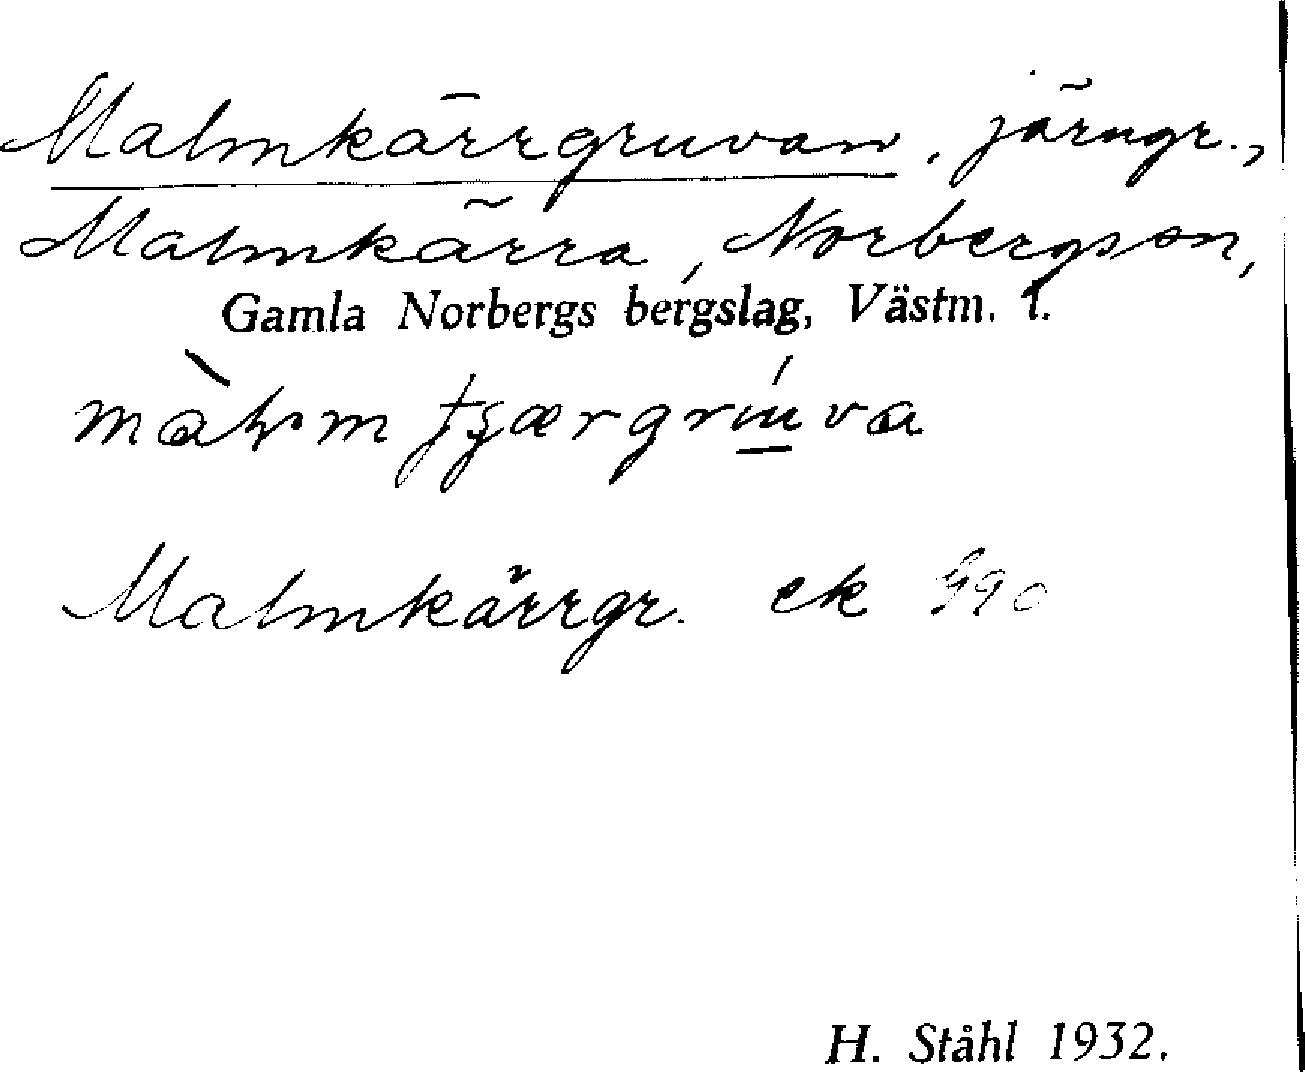 Malmkärrgruvan, järngr.,
Malmkärra, Norbergs sn,
Gamla Norbergs bergslag, Västm. l.
Malmkärrgr. ek 990
H. Ståhl 1932.